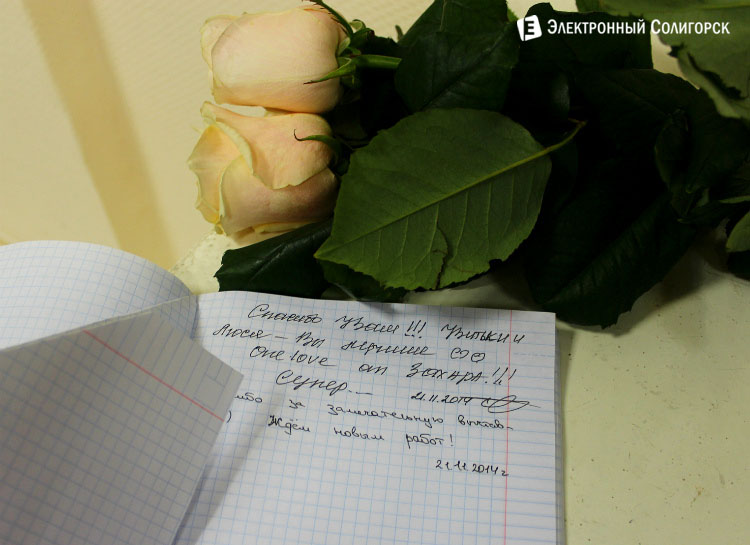 Электронный Солигорск
Спасибо Увам!!! Уваки и
Люся – Вы лучшие
One love от Захара!!!
Супер...
21.11.2014
ибо за замечательную выстав-
) Ждём новых работ!
21.11.2014 г